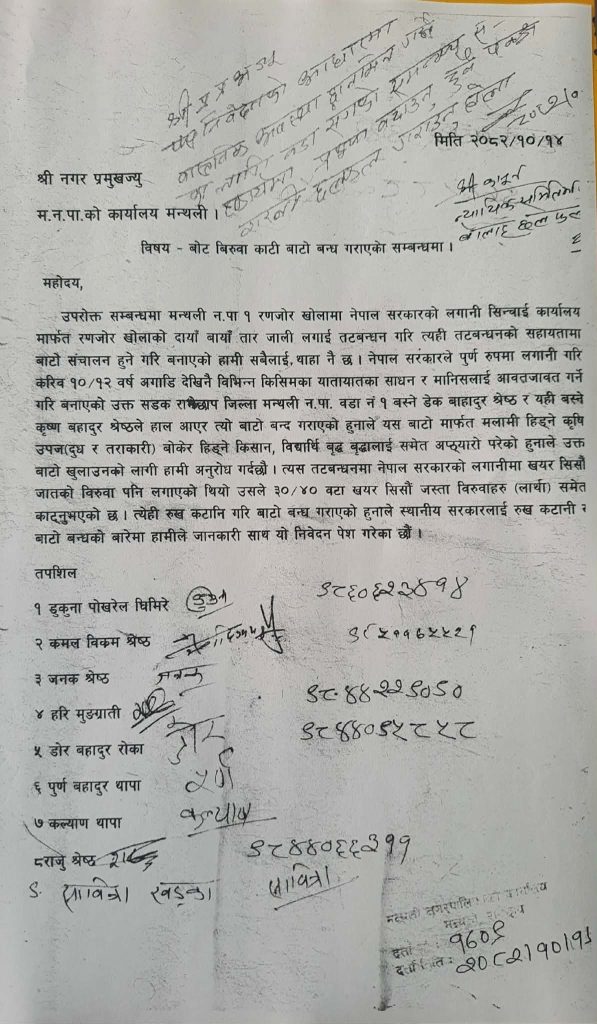 श्री प्र प्र अ ज्यू
यस निवेदनको आधारमा
वास्तविक अवस्था
मिति २०८२/१०/१४
श्री नगर प्रमुखज्यु
म.न.पा.को कार्यालय मन्थली ।
श्री कानून
न्यायिक समितिमा
विषय - बोट बिरुवा काटी बाटो बन्ध गराएको सम्बन्धमा ।
महोदय,
उपरोक्त सम्बन्धमा मन्थली न.पा १ रणजोर खोलामा नेपाल सरकारको लगानी सिन्चाई कार्यालय
मार्फत रणजोर खोलाको दायाँ बायाँ तार जाली लगाई तटबन्धन गरि त्यही तटबन्धनको सहायतामा
बाटो संचालन हुने गरि बनाएको हामी सबैलाई थाहा नै छ । नेपाल सरकारले पुर्ण रुपमा लगानी गरि
करिव १०/१२ वर्ष अगाडि देखिनै विभिन्न किसिमका यातायातका साधन र मानिसलाई आवतजावत गर्ने
गरि बनाएको उक्त सडक रामेछाप जिल्ला मन्थली न.पा. वडा नं १ बस्ने डेक बाहादुर श्रेष्ठ र यही बस्ने
कृष्ण बहादुर श्रेष्ठले हाल आएर त्यो बाटो बन्द गराएको हुनाले यस बाटो मार्फत मलामी हिड्ने कृषि
उपज(दुध र तराकारी) बोकेर हिड्ने किसान, विद्यार्थि बृद्ध बृद्धालाई समेत अप्ठ्यारो परेको हुनाले उक्त
बाटो खुलाउनको लागी हामी अनुरोध गर्दछौ । त्यस तटबन्धनमा नेपाल सरकारको लगानीमा खयर सिसौं
जातको विरुवा पनि लगाएको थियो उसले ३०/४० वटा खयर सिसौं जस्ता विरुवाहरु (लार्था) समेत
काट्नुभएको छ । त्येही रुख कटानि गरि बाटो बन्ध गराएको हुनाले स्थानीय सरकारलाई रुख कटानी र
बाटो बन्धको बारेमा हामीले जानकारी साथ यो निवेदन पेश गरेका छौं ।
तपशिल
१ डुकुना पोखरेल घिमिरे ९८६०६२३४१४
२ कमल विकम श्रेष्ठ
३ जनक श्रेष्ठ जनक
४ हरि मुङग्राती ९८४४२२९०५०
५ डोर बहादुर रोका डोर ९८४४०९५८५८
६ पुर्ण बहादुर थापा पूर्ण
७ कल्याण थापा कल्याण
८राजु श्रेष्ठ ९८४४०६६३११
९. सावित्रा खड्का सावित्रा
मन्थली नगरपालिकाको कार्यालय
१६०९
२०८२।१०।१५